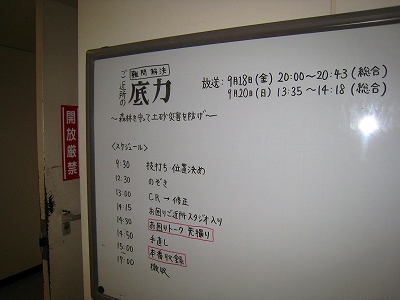 難問解決
ご近所の
底力
放送：9月18日(金) 20:00～20:43 (総合)
9月20日(日) 13:35～14:18 (総合)
～森林を守って土砂災害を防げ～
<スケジュール>
9:30 技打ち 位置決め
12:30 のぞき
13:00 CR→修正
14:15 お困りご近所スタジオ入り
14:30 お困りトーク 先撮り
14:50 手直し
15:00 本番収録
17:00 撤収
開放厳禁